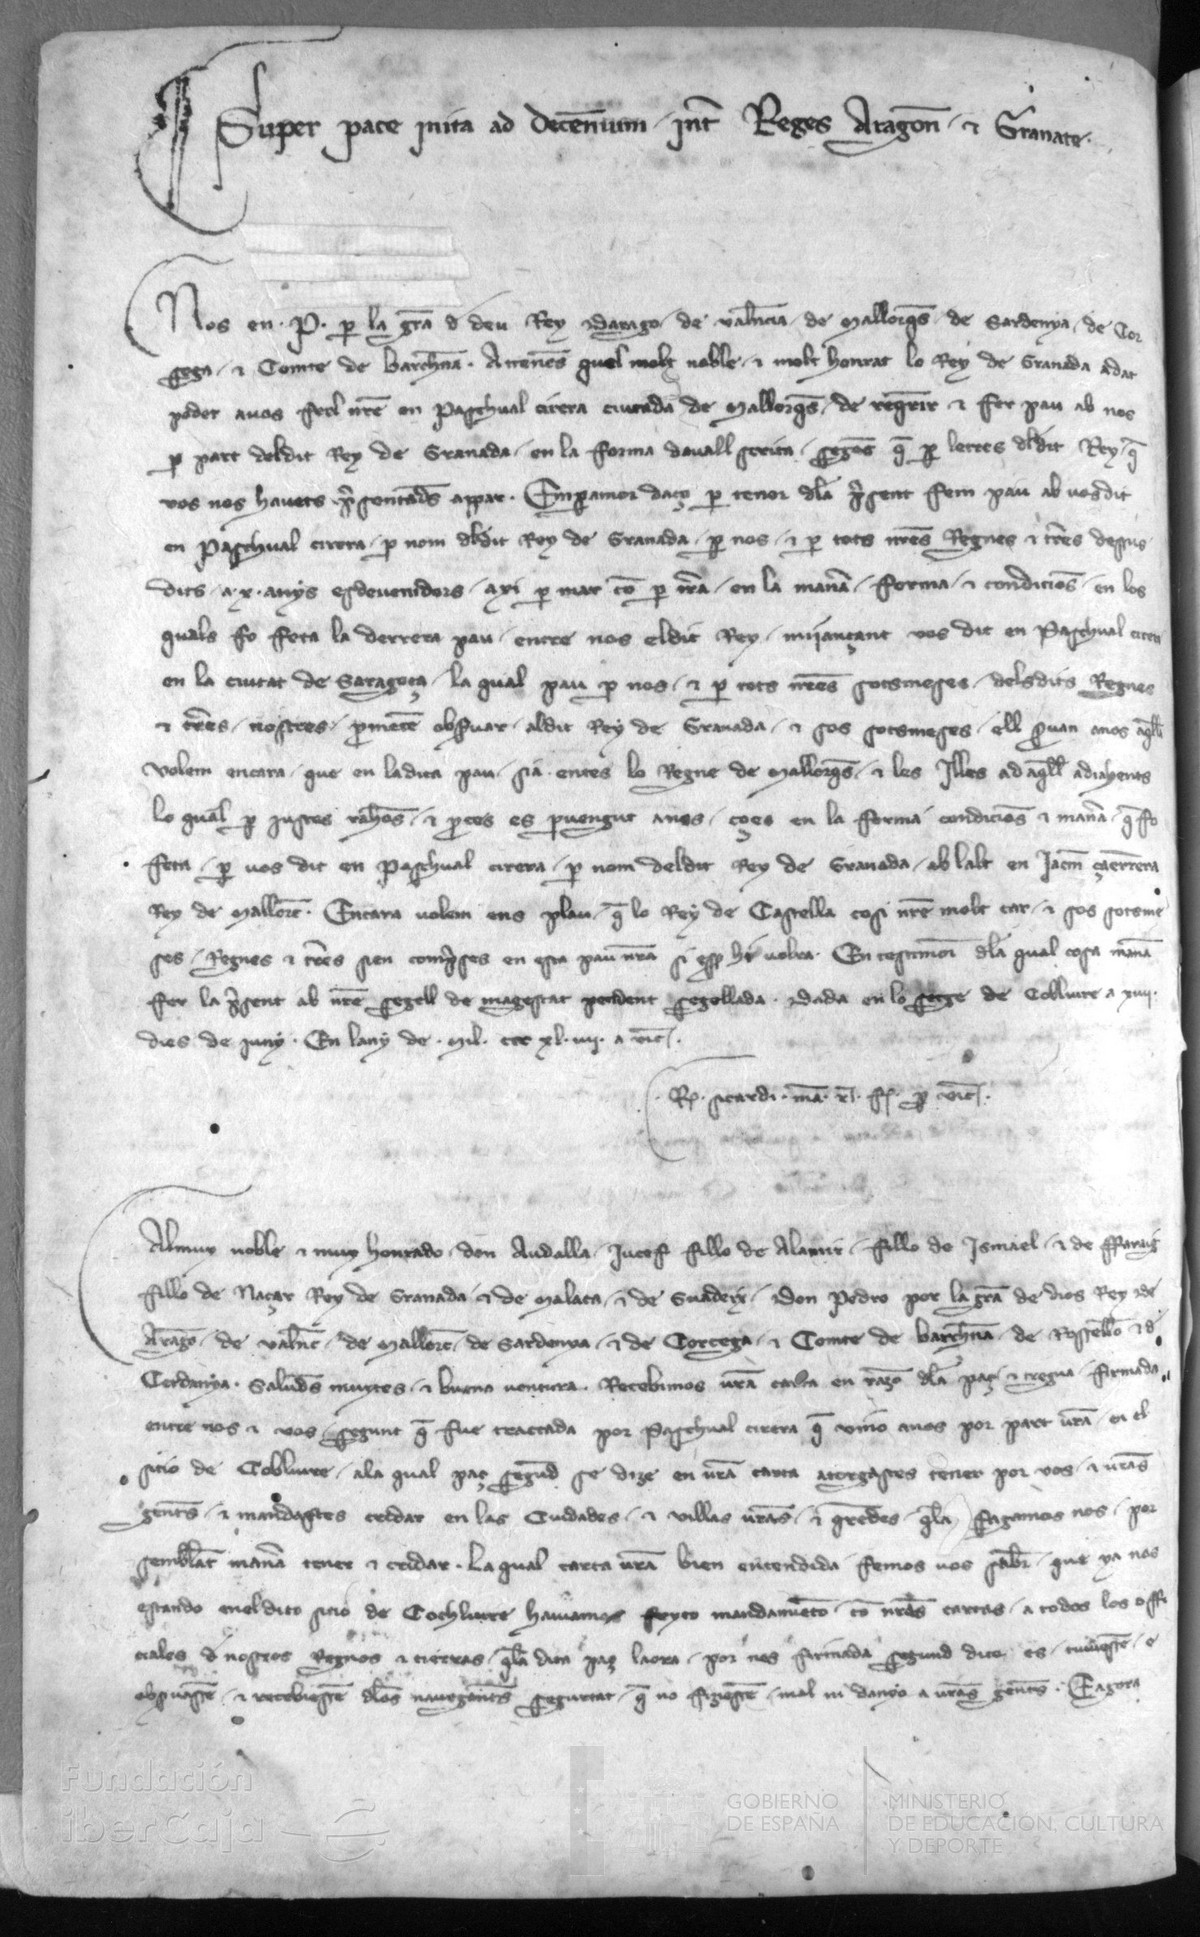 Super pace inita ad decēnium int̄ Reges Aragon̄ ⁊ Granate.
Nos en .P. ꝑ la gr̄a d deu Rey Darago de valēncia de Mallorq̄s de Sardenya de Cor
sega ⁊ Comte de barchn̄a. Attenēs quel molt noble ⁊ molt honrat lo Rey de Granada a dat
poder a uos feel nr̄e en Paschual cirera ciutadā de Mallorq̄s de reqrir ⁊ fer pau ab nos
ꝑ part deldit Rey de Granada en la forma dauall scrita segōs q̄ ꝑ letres dldit Rey q̄
vos nos hauets p̄sentads appar. Emꝑamor daço ꝑ tenor dla p̄sent fem pau ab uos dit
en Paschual cirera ꝑ nom dldit Rey de Granada ꝑ nos ⁊ ꝑ tots nr̄es Regnes ⁊ tr̄es dessus
dits a .x. anys esdeuenidors axi ꝑ mar cō ꝑ tr̄a en la manā forma ⁊ condiciōs en los
quals fo feta la derrera pau entre nos eldit Rey mijançant vos dit en Paschual cirera
en la ciutat de Saragoça la qual pau ꝑ nos ⁊ ꝑ tots nr̄es sotsmeses delsdits Regnes
⁊ tr̄es nostres ꝓmetē obseruar aldit Rey de Granada ⁊ sos sotsmeses ell seruan a nos aq̄lla
volem encara que en la dita pau sia entes lo Regne de Mallorq̄s ⁊ les Illes ad aq̄ll adiahents
lo qual ꝑ justes rahōs ⁊ ꝓces es ꝑuengut a nos ço es en la forma condiciōs ⁊ manā q̄ fo
feta ꝑ uos dit en Paschual cirera ꝑ nom deldit Rey de Granada ab lalt en Jacm̄ çaenrrera
Rey de Mallorc̄. Encara uolem ens plau q̄ lo Rey de Castella cosi nr̄e molt car ⁊ sos sotsme
ses Regnes ⁊ tr̄es sien comp̄ses en esta pau nr̄a si esser hi volra. En testimoni dla qual cosa manā
fer la p̄sent ab nr̄e segell de magestat pendent segellada. Dada en lo setge de Cobliure a xiiij.
dies de juny. En lany de .Mil. ccc xl. iiij. a vic̄.
.Rs. sicardi. mā. r̄. ff. ꝑ vic̄.
Al muy noble ⁊ muy honrado don Audalla Juceff fillo de Alamir fillo de Ismael ⁊ de ffaraig
fillo de Naçar Rey de Granada ⁊ de Malaca ⁊ de Guadeix Don Pedro por la gr̄a de dios Rey de
Aragō de valēnc̄ de Mallorc̄ de Sardenya ⁊ de Corcega ⁊ Comte de barchn̄a de Rossellō ⁊ d
Cerdanya. Saluds muytes ⁊ buena uentura. Recebimos ur̄a carta en razō dla paç ⁊ tregua firmada
entre nos ⁊ vos segunt q̄ fue tractada por Paschual cirera q̄ vino a nos por part ur̄a en el
sitio de Cobliure a la qual paç segūd se dize en ur̄a carta atorgastes tener por vos ⁊ ur̄as
gentes ⁊ mandastes cridar en las Ciudades ⁊ villas ur̄as ⁊ q̄redes q̄la fagamos nos por
semblāt manā tener ⁊ cridar. La qual carta ur̄a bien entendida femos uos saber que ya nos
estando eneldito sitio de Cochliure hauiamos feyto mandamēto cō nr̄as cartas a todos los offi
ciales d nostros Regnos ⁊ tierras q̄la dita paç laora por nos firmada segund dito es tuuiessē e
obseruassē ⁊ recebiessē dlos nauegantes segurtat q̄ no fiziessē mal ni danyo a ur̄as gentes. E agora
Fundación
iberCaja
GOBIERNO
DE ESPAÑA
MINISTERIO
DE EDUCACIÓN, CULTURA
Y DEPORTE